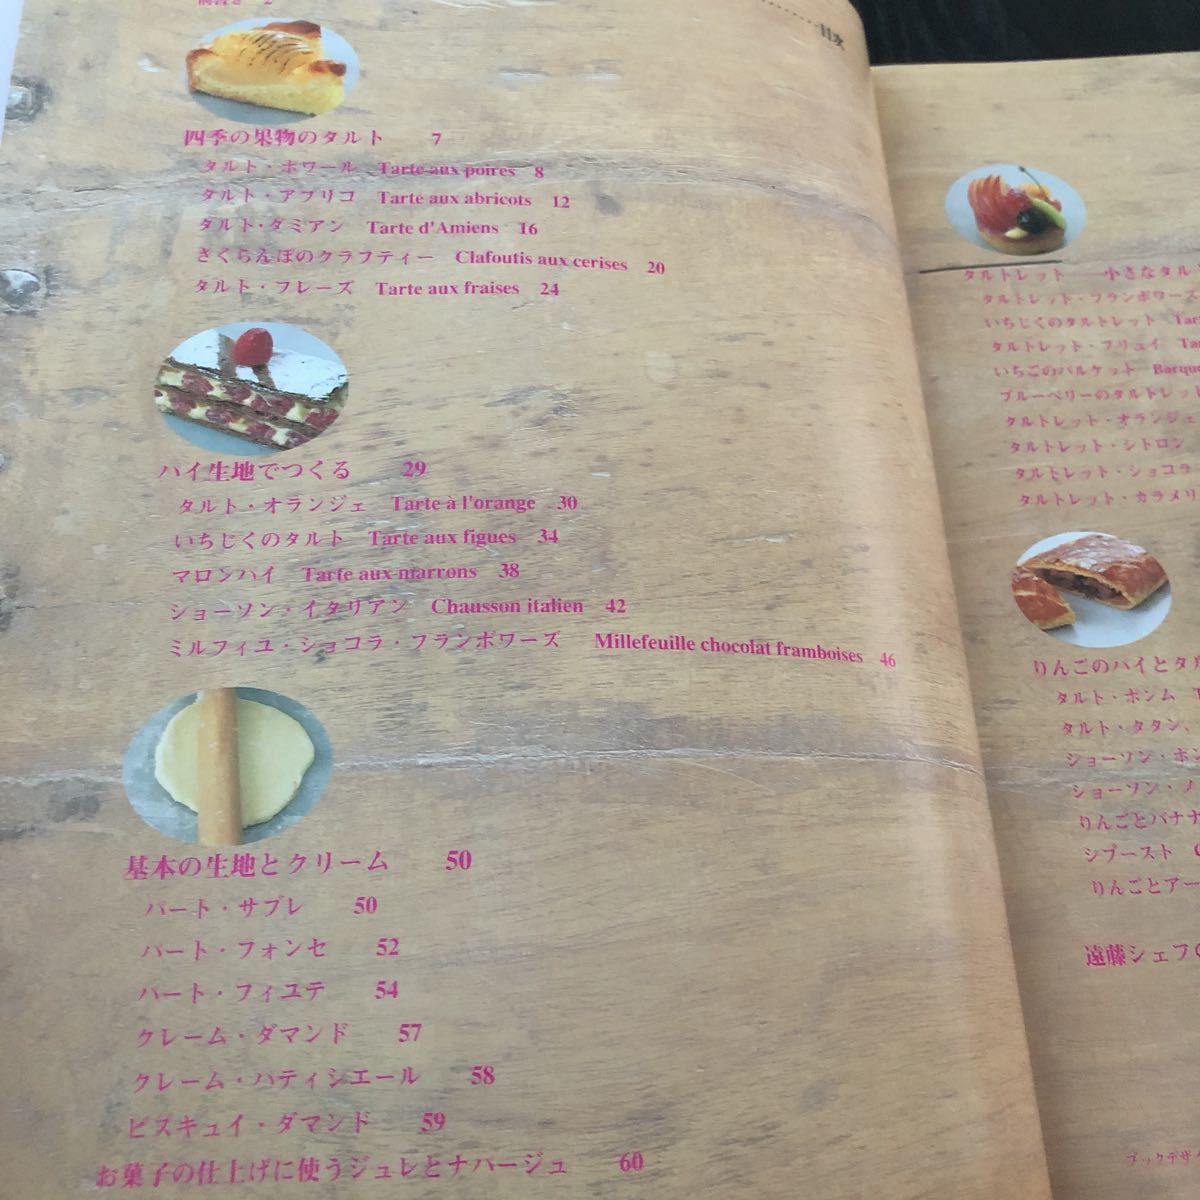 目次
四季の果物のタルト 7
タルト・ポワール Tarte aux poires 8
タルト・アブリコ Tarte aux abricots 12
タルト・ダミアン Tarte d'Amiens 16
さくらんぼのクラフティー Clafoutis aux cerises 20
タルト・フレーズ Tarte aux fraises 24
パイ生地でつくる 29
タルト・オランジェ Tarte à l'orange 30
いちじくのタルト Tarte aux figues 34
マロンパイ Tarte aux marrons 38
ショーソン・イタリアン Chausson italien 42
ミルフィユ・ショコラ・フランボワーズ Millefeuille chocolat framboises 46
基本の生地とクリーム 50
パート・サブレ 50
パート・フォンセ 52
パート・フィユテ 54
クレーム・ダマンド 57
クレーム・パティシエール 58
ビスキュイ・ダマンド 59
お菓子の仕上げに使うジュレとナパージュ 60
タルトレット 小さなタル
タルトレット・フランボワーズ
いちじくのタルトレット Tar
タルトレット・フリュイ Ta
いちごのバルケット Barque
ブルーベリーのタルトレッ
タルトレット・オランジェ
タルトレット・シトロン
タルトレット・ショコラ
タルトレット・カラメリ
りんごのパイとタル
タルト・ポンム
タルト・タタン、
ショーソン・ポン
ショーソン・ノ
りんごとバナナ
シブースト
りんごとアー
遠藤シェフの
ブックデザイ